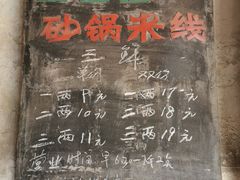 砂锅米线
三鲜
单份 双份
一两9元 一两17元
二两10元 二两18元
三两11元 三两19元
营业时间早6:00